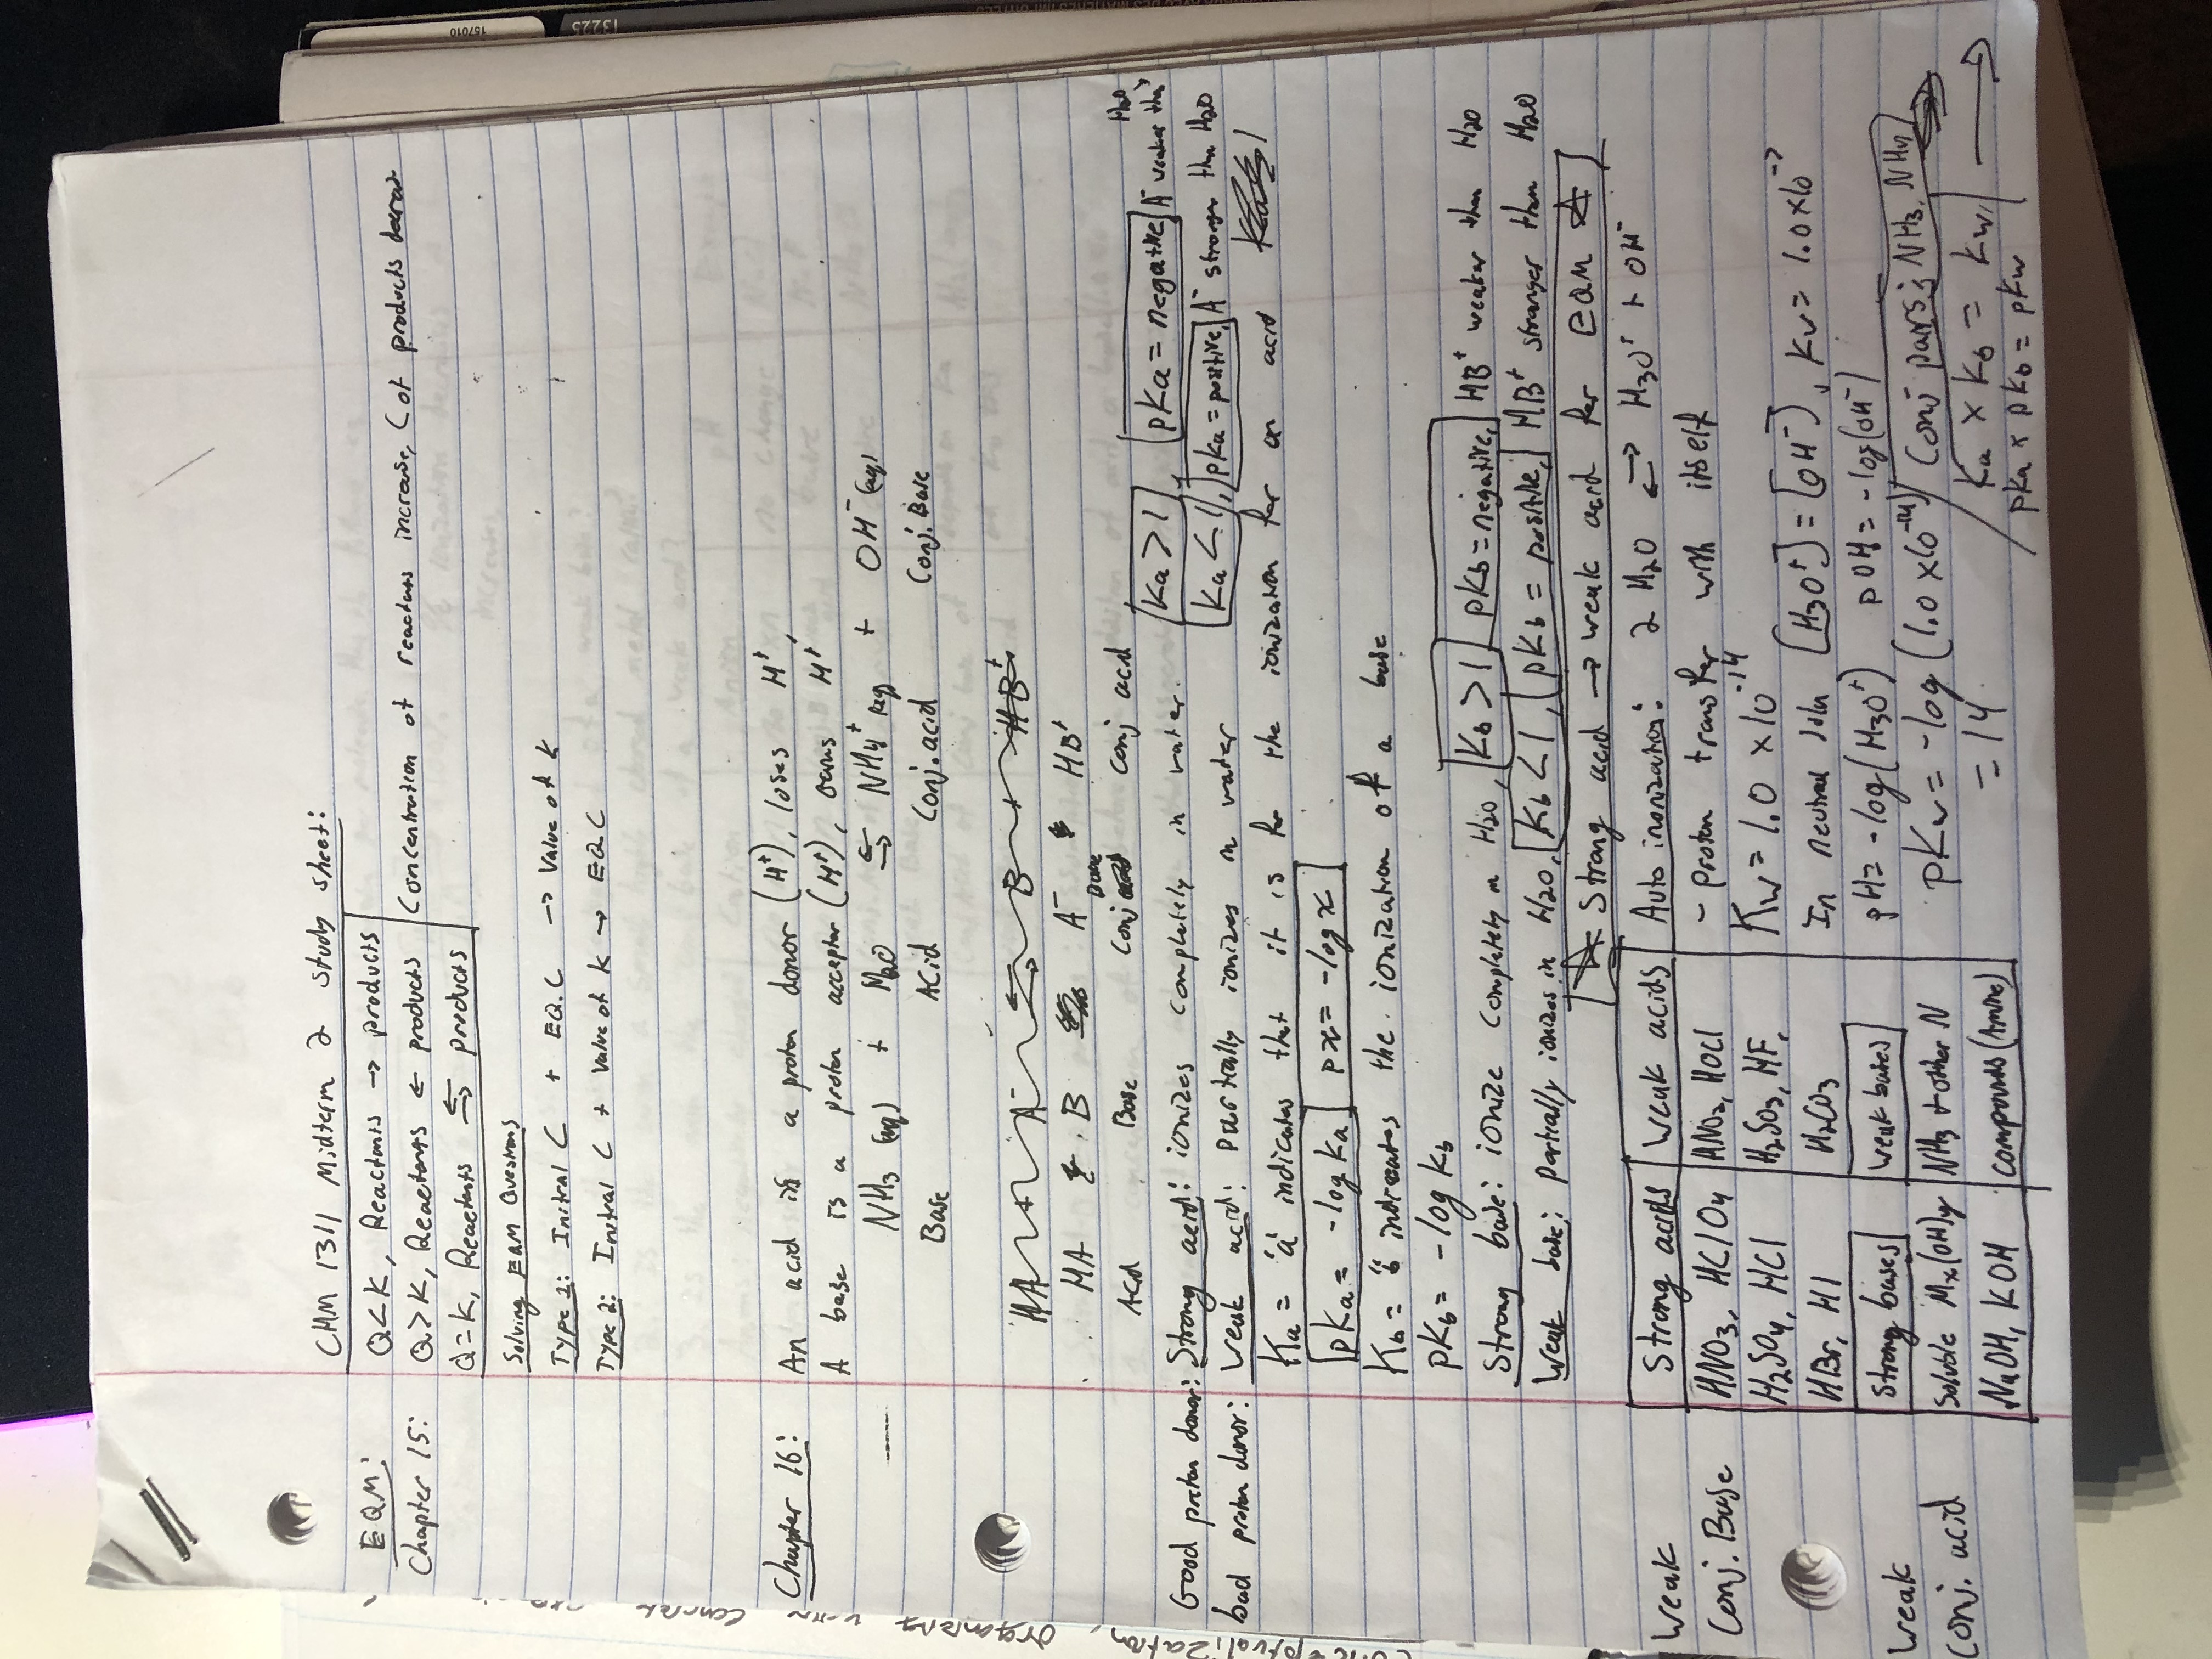 CHM 1311 Midterm 2 study sheet:
EQM:
Chapter 15:
Q<K, Reactants → products
Q>K, Reactants ← products
Q=K, Reactants ⇆ products
Concentration of reactans increase, C of products decrea
Solving EQM Questions
Type 1: Initial C + EQ.C → Value of K
Type 2: Initial C + Value of K → EQ C
Chapter 16:
An acid is a proton donor (H⁺), loses H⁺
A base is a proton acceptor (H⁺), gains H⁺
NH3 (aq) + H2O ⇆ NH4⁺ (aq) + OH⁻ (aq)
Base Acid Conj. acid Conj. Base
HA B A⁻ HB⁺
Acid Base Conj Base Conj acid
Good proton donor: Strong acid: ionizes completely in water. Ka > 1, pKa = negative, A⁻ weaker than H2O
bad proton donor: weak acid: partially ionizes in water Ka < 1, pKa = positive, A⁻ stronger than H2O
Ka = "a" indicates that it is for the ionization for an acid
pKa = -log Ka px = -log x
Kb = "b" indicates the ionization of a base
pKb = -log Kb
Strong base: ionize completely in H2O, Kb > 1, pKb = negative, HB⁺ weaker than H2O
Weak base: partially ionizes in H2O, Kb < 1, pKb = positive, HB⁺ stronger than H2O
☆ Strong acid → weak acid for EQM ☆
Weak
Conj. Base
Strong acids
HNO3, HClO4
H2SO4, HCl
HBr, HI
weak acids
HNO2, HOCl
H2SO3, HF,
H2CO3
Weak
Conj. acid
Strong bases
Soluble Mx(OH)y
NaOH, KOH
weak bases
NH3 + other N
compounds (Amine)
Auto inonization: 2 H2O ⇆ H3O⁺ + OH⁻
- proton transfer with itself
Kw = 1.0 x10⁻¹⁴
In neutral soln [H3O⁺] = [OH⁻], Kw = 1.0 x10⁻⁷
pH = -log(H3O⁺) pOH = -log(OH⁻)
pKw = -log (1.0 x10⁻¹⁴)
= 14
Conj pairs; NH3, NH4
Ka x Kb = Kw,
pKa x pKb = pKw